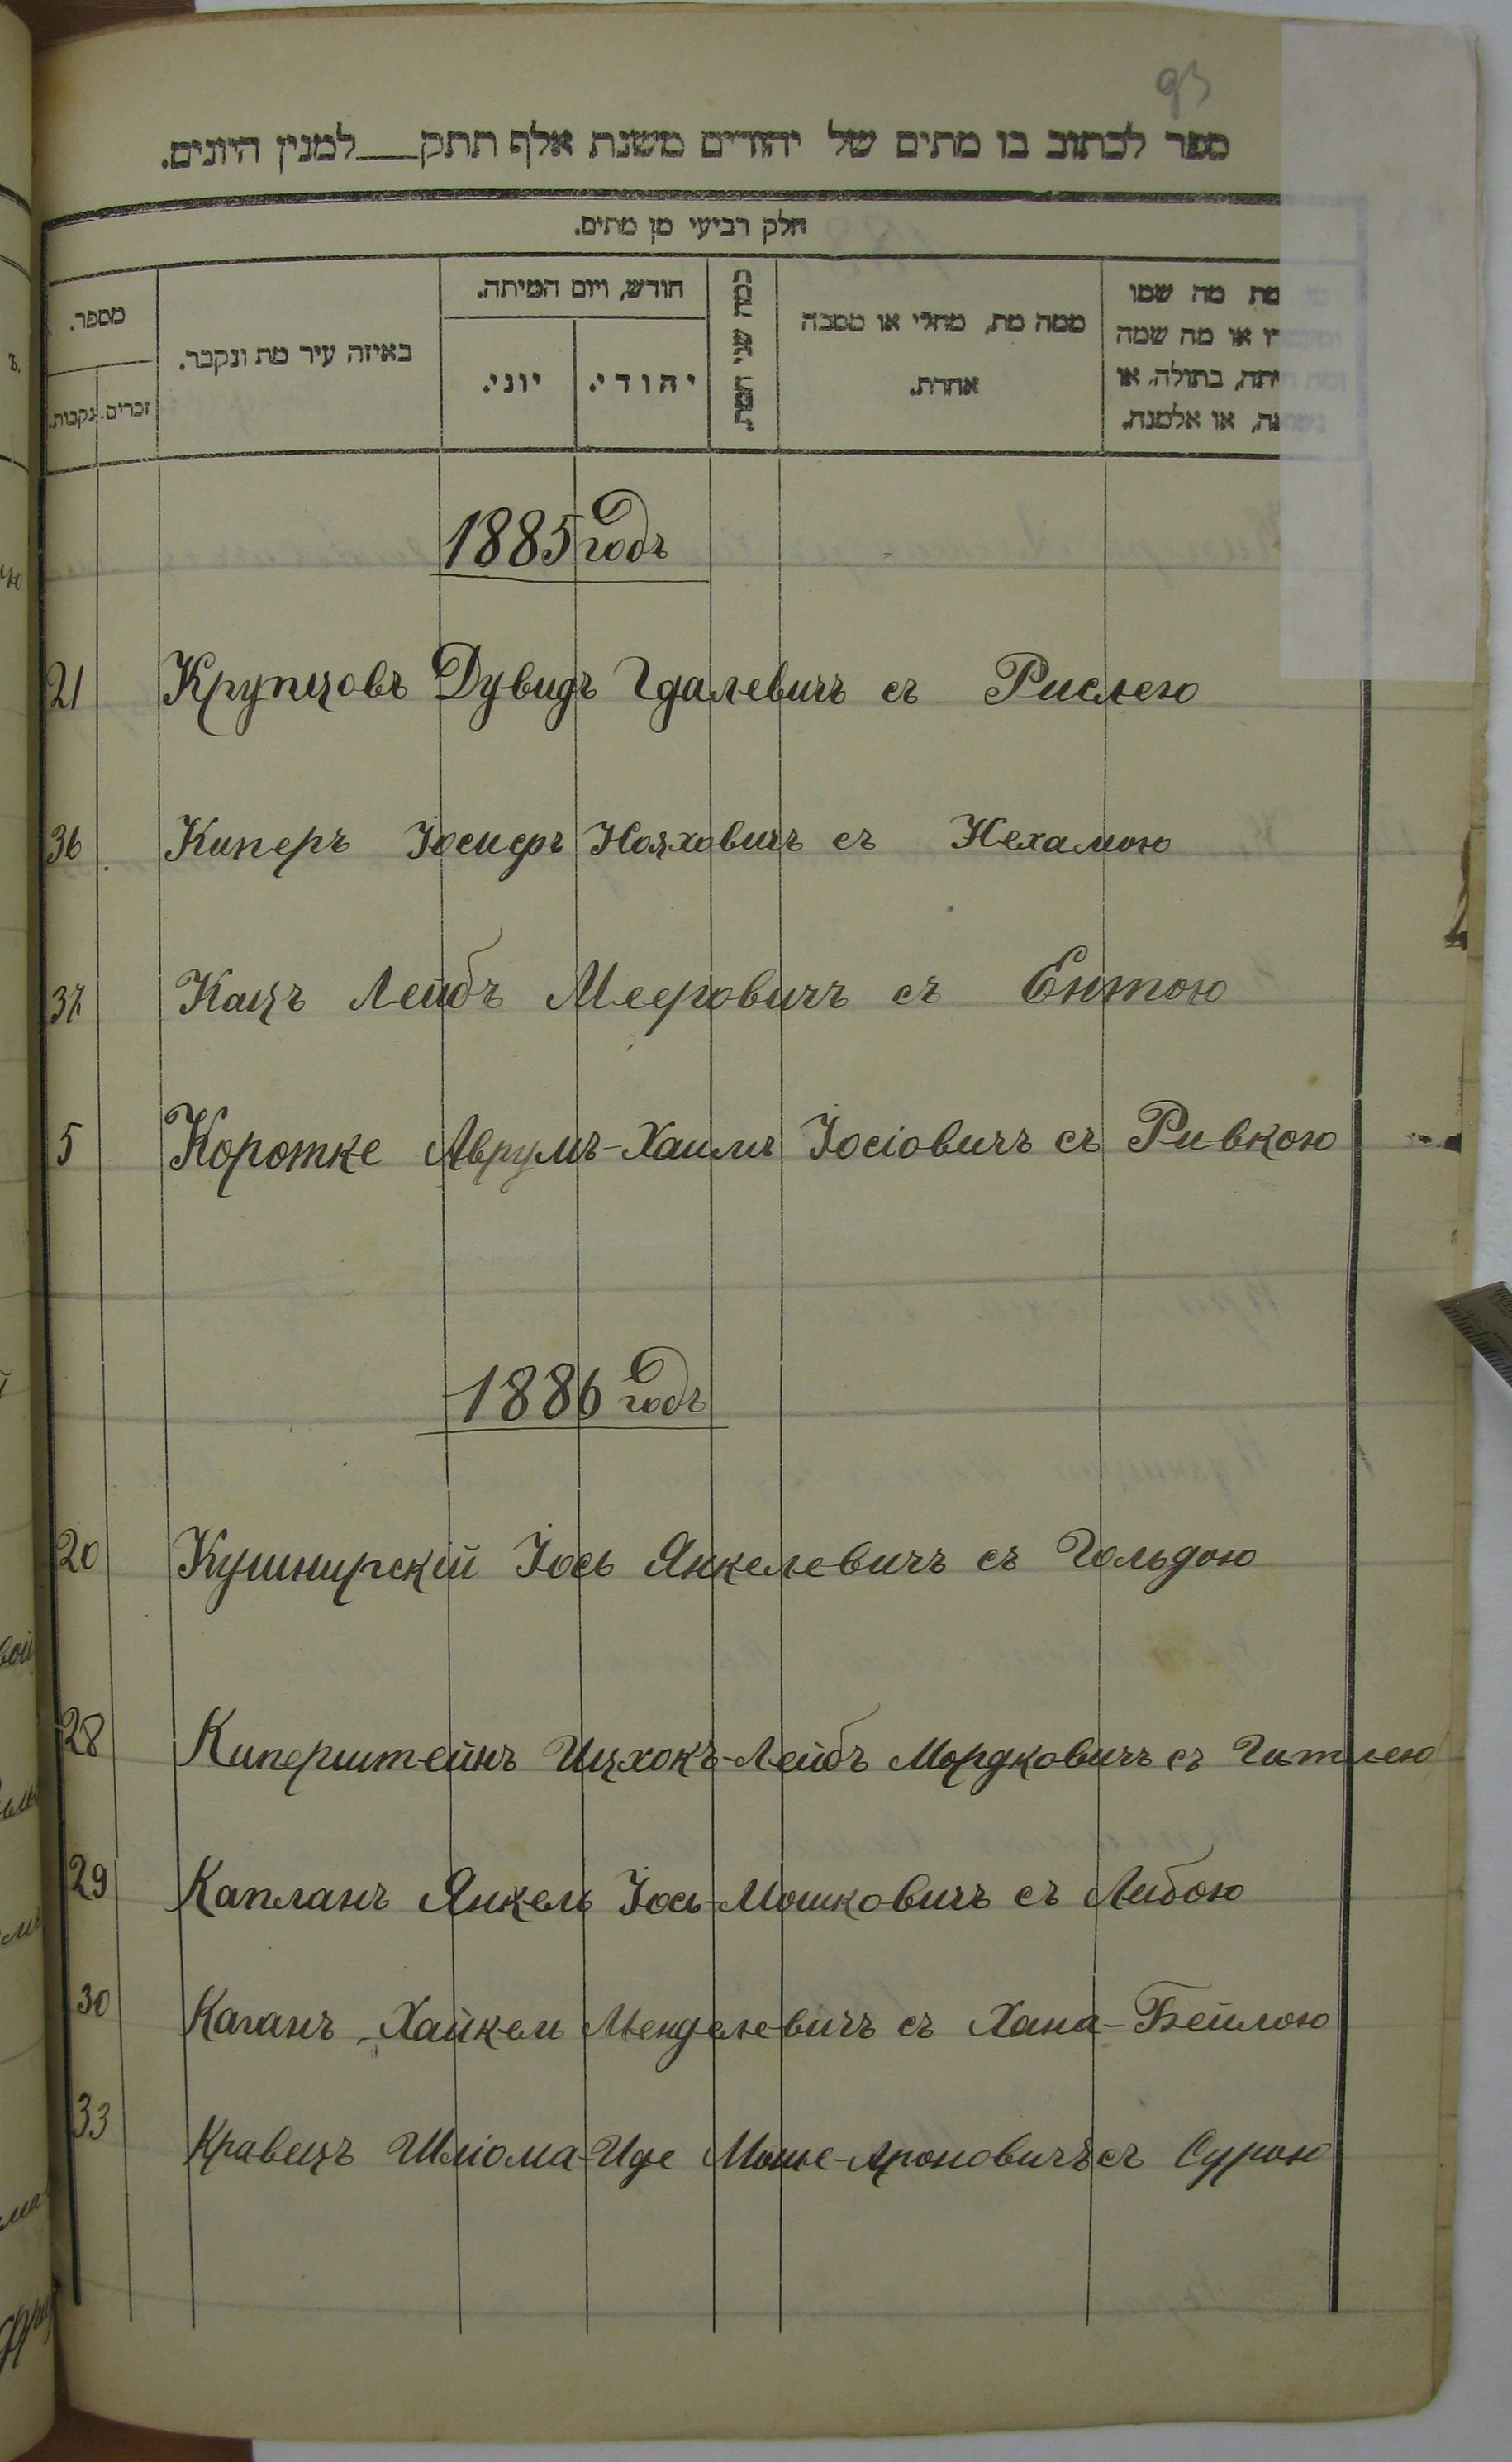 93
ספר לכתוב בו מתים של יהודים משנת אלף תתק___למנין היונים.
חלק רביעי מן מתים.
מת מה שמו
או מה שמה
בתולה, או
או אלמנה.
ממה מת, מחלי או מסבה
אחרת.
כמה שני המת.
חודש, ויום המיתה.
יהודי.
יוני.
באיזה עיר מת ונקבר.
מספר.
זכרים.
נקבות.
1885 годъ
21 Крупцовъ Дувидъ Гдалевичъ съ Рислею
36 Киперъ Іосифъ Нояховичъ съ Нехамою
37 Кацъ Лейбъ Мееровичъ съ Ентою
5 Коротке Аврумъ-Хаимъ Іосіовичъ съ Ривкою
1886 годъ
20 Кушнирскій Іось Янкелевичъ съ Гольдою
28 Киперштейнъ Ицхокъ-Лейбъ Мордковичъ съ Гитлею
29 Капланъ Янкель Іось-Мошковичъ съ Либою
30 Каганъ Хайкель Менделевичъ съ Хана-Бейлою
33 Кравецъ Шліома-Иде Моше-Ароновичъ съ Сурою